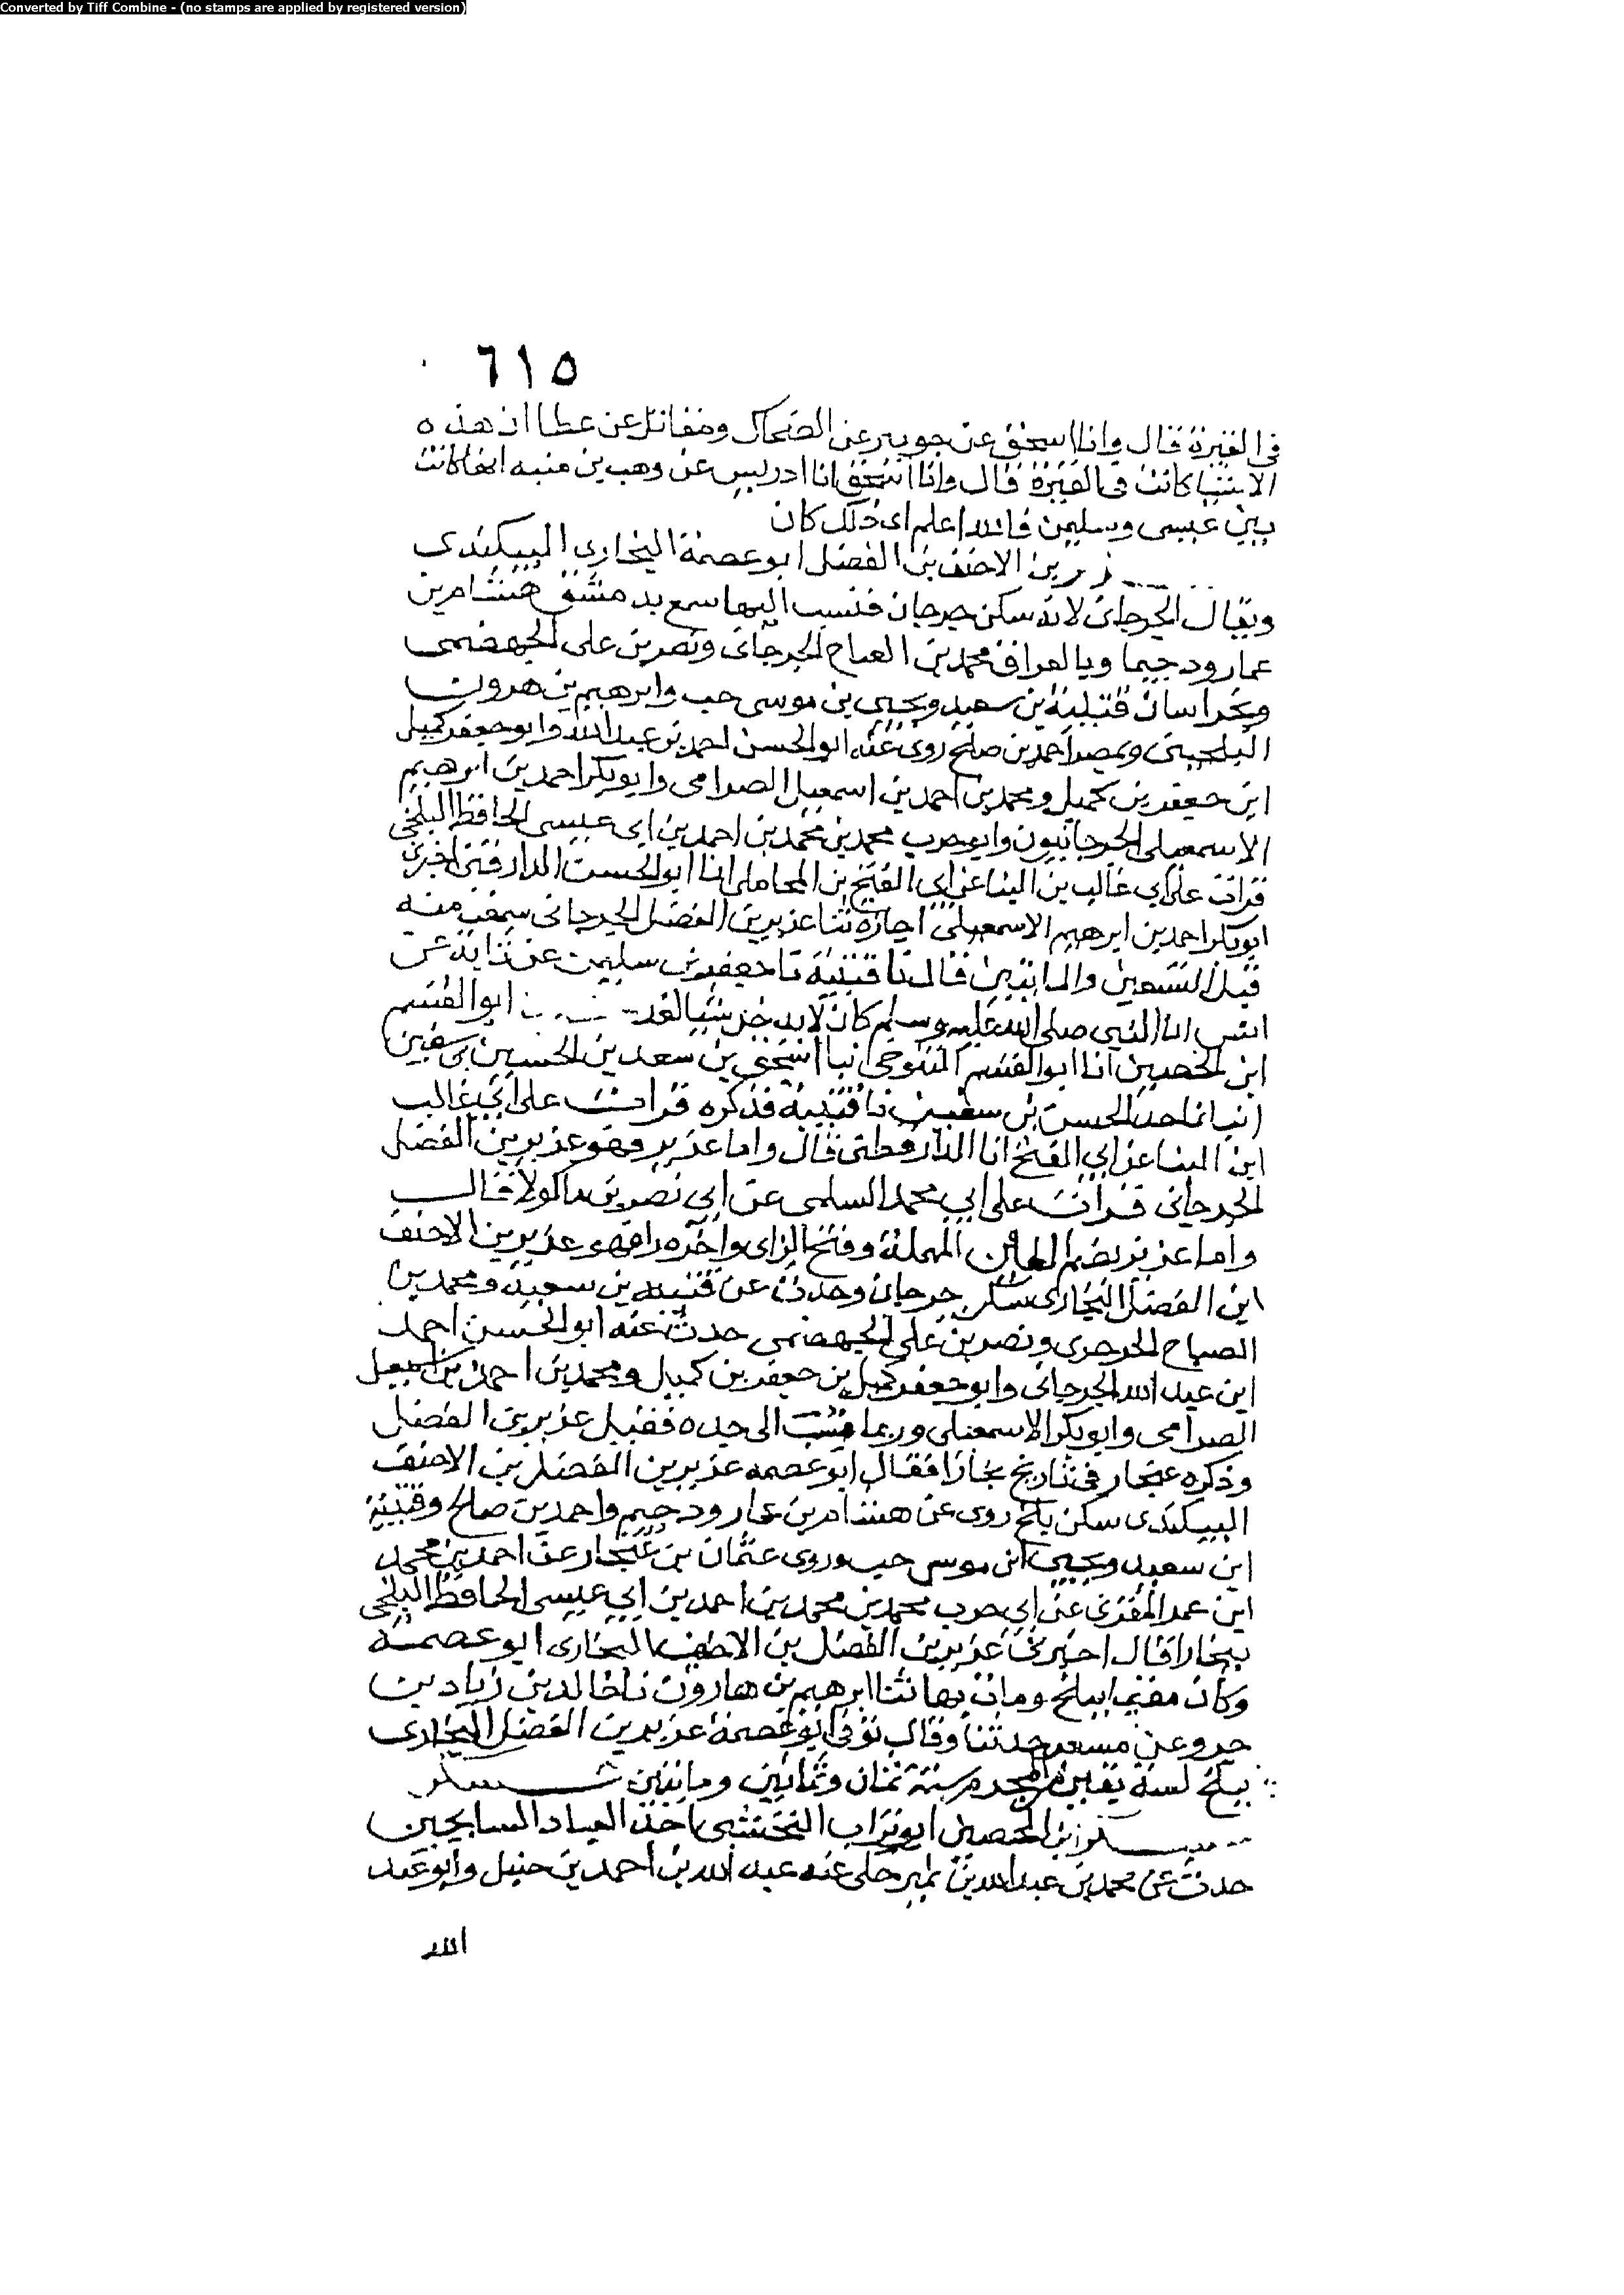 Converted by Tiff Combine - (no stamps are applied by registered version)
٦١٥
في الفترة قال وانا اسحق عن جويبر عن الضحاك ومقاتل عن عطا ان هذه
الابنيا كانت في الفترة قال وانا اسحق انا ادريس عن وهب بن منبه انها كانت
بين عيسى وسليمن فالله اعلم اى ذلك كان
بن الاحنف بن الفضل ابو عصمة البخارى البيكندي
ويقال الجرجاني لانه سكن جرجان فنسب اليها سمع بدمشق هشام بن
عمار ودحيما وبالعراق محمد بن الصباح الجرجاني ونصر بن علي الجهضمى
وبخراسان قتيبة بن سعيد ويحيى بن موسى خت وابرهيم بن هرون
البلخيين وبمصر احمد بن صالح روى عنه ابو الحسن احمد بن عبد الله وابو جعفر كميل
ابن جعفر بن كميل ومحمد بن احمد بن اسمعيل الصرامى وابو بكر احمد بن ابرهيم
الاسمعيلى الجرجانيون وابو حرب محمد بن محمد بن احمد بن ابي عيسى الحافظ البلخي
قرات على ابي غالب بن البنا عن ابي الفتح بن المحاملى انا ابو الحسن الدارقطني اخبرني
ابو بكر احمد بن ابرهيم الاسمعيلي اجازة ثنا عزير بن الفضل الجرجانى سمعت منه
قبل التسعين والمايتين قال نا قتيبة نا جعفر بن سليمن عن ثابت عن
انس ان النبي صلى الله عليه وسلم كان لا يدخر شيا لغد ابو القسم
ابن الحصين انا ابو القسم التنوخى انبا اسحق بن سعد بن الحسين بن سفين
انبا نا الحسن بن سفين نا قتيبة فذكره قرات على ابي غالب
ابن البنا عن ابي الفتح انا الدارقطنى قال واما عزير فهو عزير بن الفضل
الجرجاني قرات على ابي محمد السلمى عن ابي نصر بن ماكولا قال
واما عزير بضم العين المهملة وفتح الزاى واخره را فهو عزير بن الاحنف
ابن الفضل البخارى سكن جرجان وحدث عن قتيبه بن سعيد ومحمد بن
الصباح الجرجرى ونصر بن علي الجهضمى حدث عنه ابو الحسن احمد
ابن عبد الله الجرجانى وابو جعفر كميل بن جعفر بن كميل ومحمد بن احمد بن اسمعيل
الصرامى وابو بكر الاسمعيلى وربما نسب الى جده فقيل عزير بن الفضل
وذكره غنجار في تاريخ بخارا فقال ابو عصمه عزير بن الفضل بن الاحنف
البيكندى سكن بلخ روى عن هشام بن عمار ودحيم واحمد بن صالح وقتيبة
ابن سعيد ويحيى ابن موسى خت وروى عثمان بن غنجار عن احمد بن محمد
ابن عمد المقرى عن ابي حرب محمد بن محمد بن احمد بن ابي عيسى الحافظ البلخي
ببخارا قال اخبرنا عزير بن الفضل بن الاحنف البخارى ابو عصمة
وكان مقيما ببلخ ومات بها ثنا ابرهيم بن هارون نا خالد بن زياد بن
جرو عن مسعر حدثنا وقال توفي ابو عصمة عزير بن الفضل البخارى
ببلخ لسنة بقين من المحرم سنة ثمان وثمانين وماتين
بن الحصين ابو تراب النخشبى احد العباد السايحين
حدث عن محمد بن عبد الله بن نمير حكى عنه عبد الله بن احمد بن حنبل وابو عبد
الله